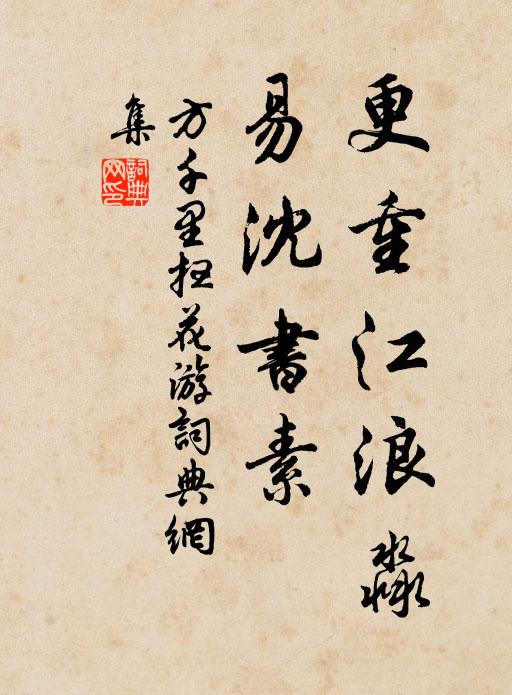 更重江浪淼
易沈書素
方千里掃花游詞典網
集
詞典網印